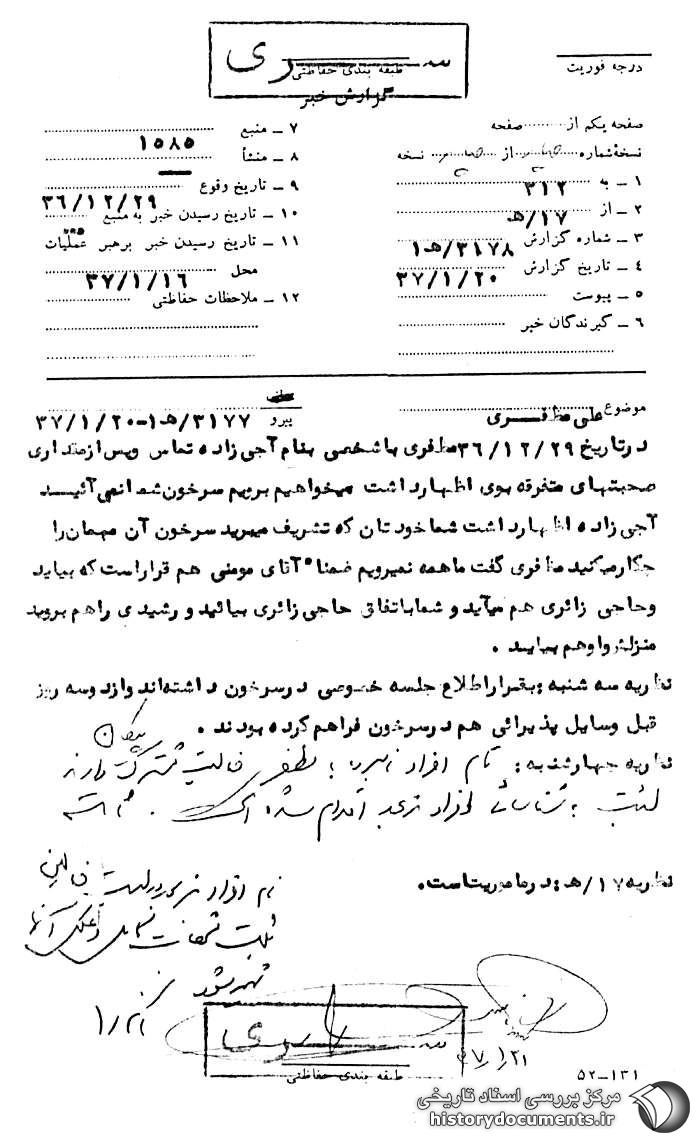 سری
طبقه بندی حفاظتی
گزارش خبر
درجه فوریت
صفحه یکم از صفحه
نسخه شماره از نسخه
۱ ــ به ۳۱۲
۲ ــ از ۱۷/هـ
۳ ــ شماره گزارش ۳۱۷۸/هـ۱
۴ ــ تاریخ گزارش ۳۷/۱/۲۰
۵ ــ پیوست
۶ ــ گیرندگان خبر
۷ ــ منبع ۱۵۸۵
۸ ــ منشأ
۹ ــ تاریخ وقوع ۳۶/۱۲/۲۹
۱۰ ــ تاریخ رسیدن خبر به منبع
۱۱ ــ تاریخ رسیدن خبر برهبر عملیات
محل ۳۷/۱/۱۶
۱۲ ــ ملاحظات حفاظتی
موضوع علی مظفری
پیرو ۳۱۷۷/هـ۱-۳۷/۱/۲۰
درتاریخ ۳۶/۱۲/۲۹ مظفری باشخصی بنام آجی زاده تماس وپس ازمقداری
صحبتهای متفرقه بوی اظهارداشت میخواهیم برویم سرخون شما نمی آئید
آجی زاده اظهارداشت شما خودتان که تشریف میبرید سرخون آن مهمان را
چکارمیکنید مظفری گفت ماهمه نمیرویم ضمنا" آقای مومنی هم قراراست که بیاید
وحاجی زائری هم میآید و شما باتفاق حاجی زائری بیائید و رشیدی راهم بروید
منزلش واوهم بیاید .
نظریه سه شنبه : بقراراطلاع جلسه خصوصی درسرخون داشته‌اند وازدوسه روز
قبل وسایل پذیرائی هم درسرخون فراهم کرده بودند .
نظریه چهارشنبه : نام افراد
نسبت به شناسائی افراد اقدام شده است .
نظریه ۱۷/هـ : درماموریت است .
نام افراد
آنها
۲۱/۱
۳۷/۱/۲۱
سری
طبقه بندی حفاظتی
۵۲ــ۱۳۱
مرکز بررسی اسناد تاریخی
historydocuments.ir